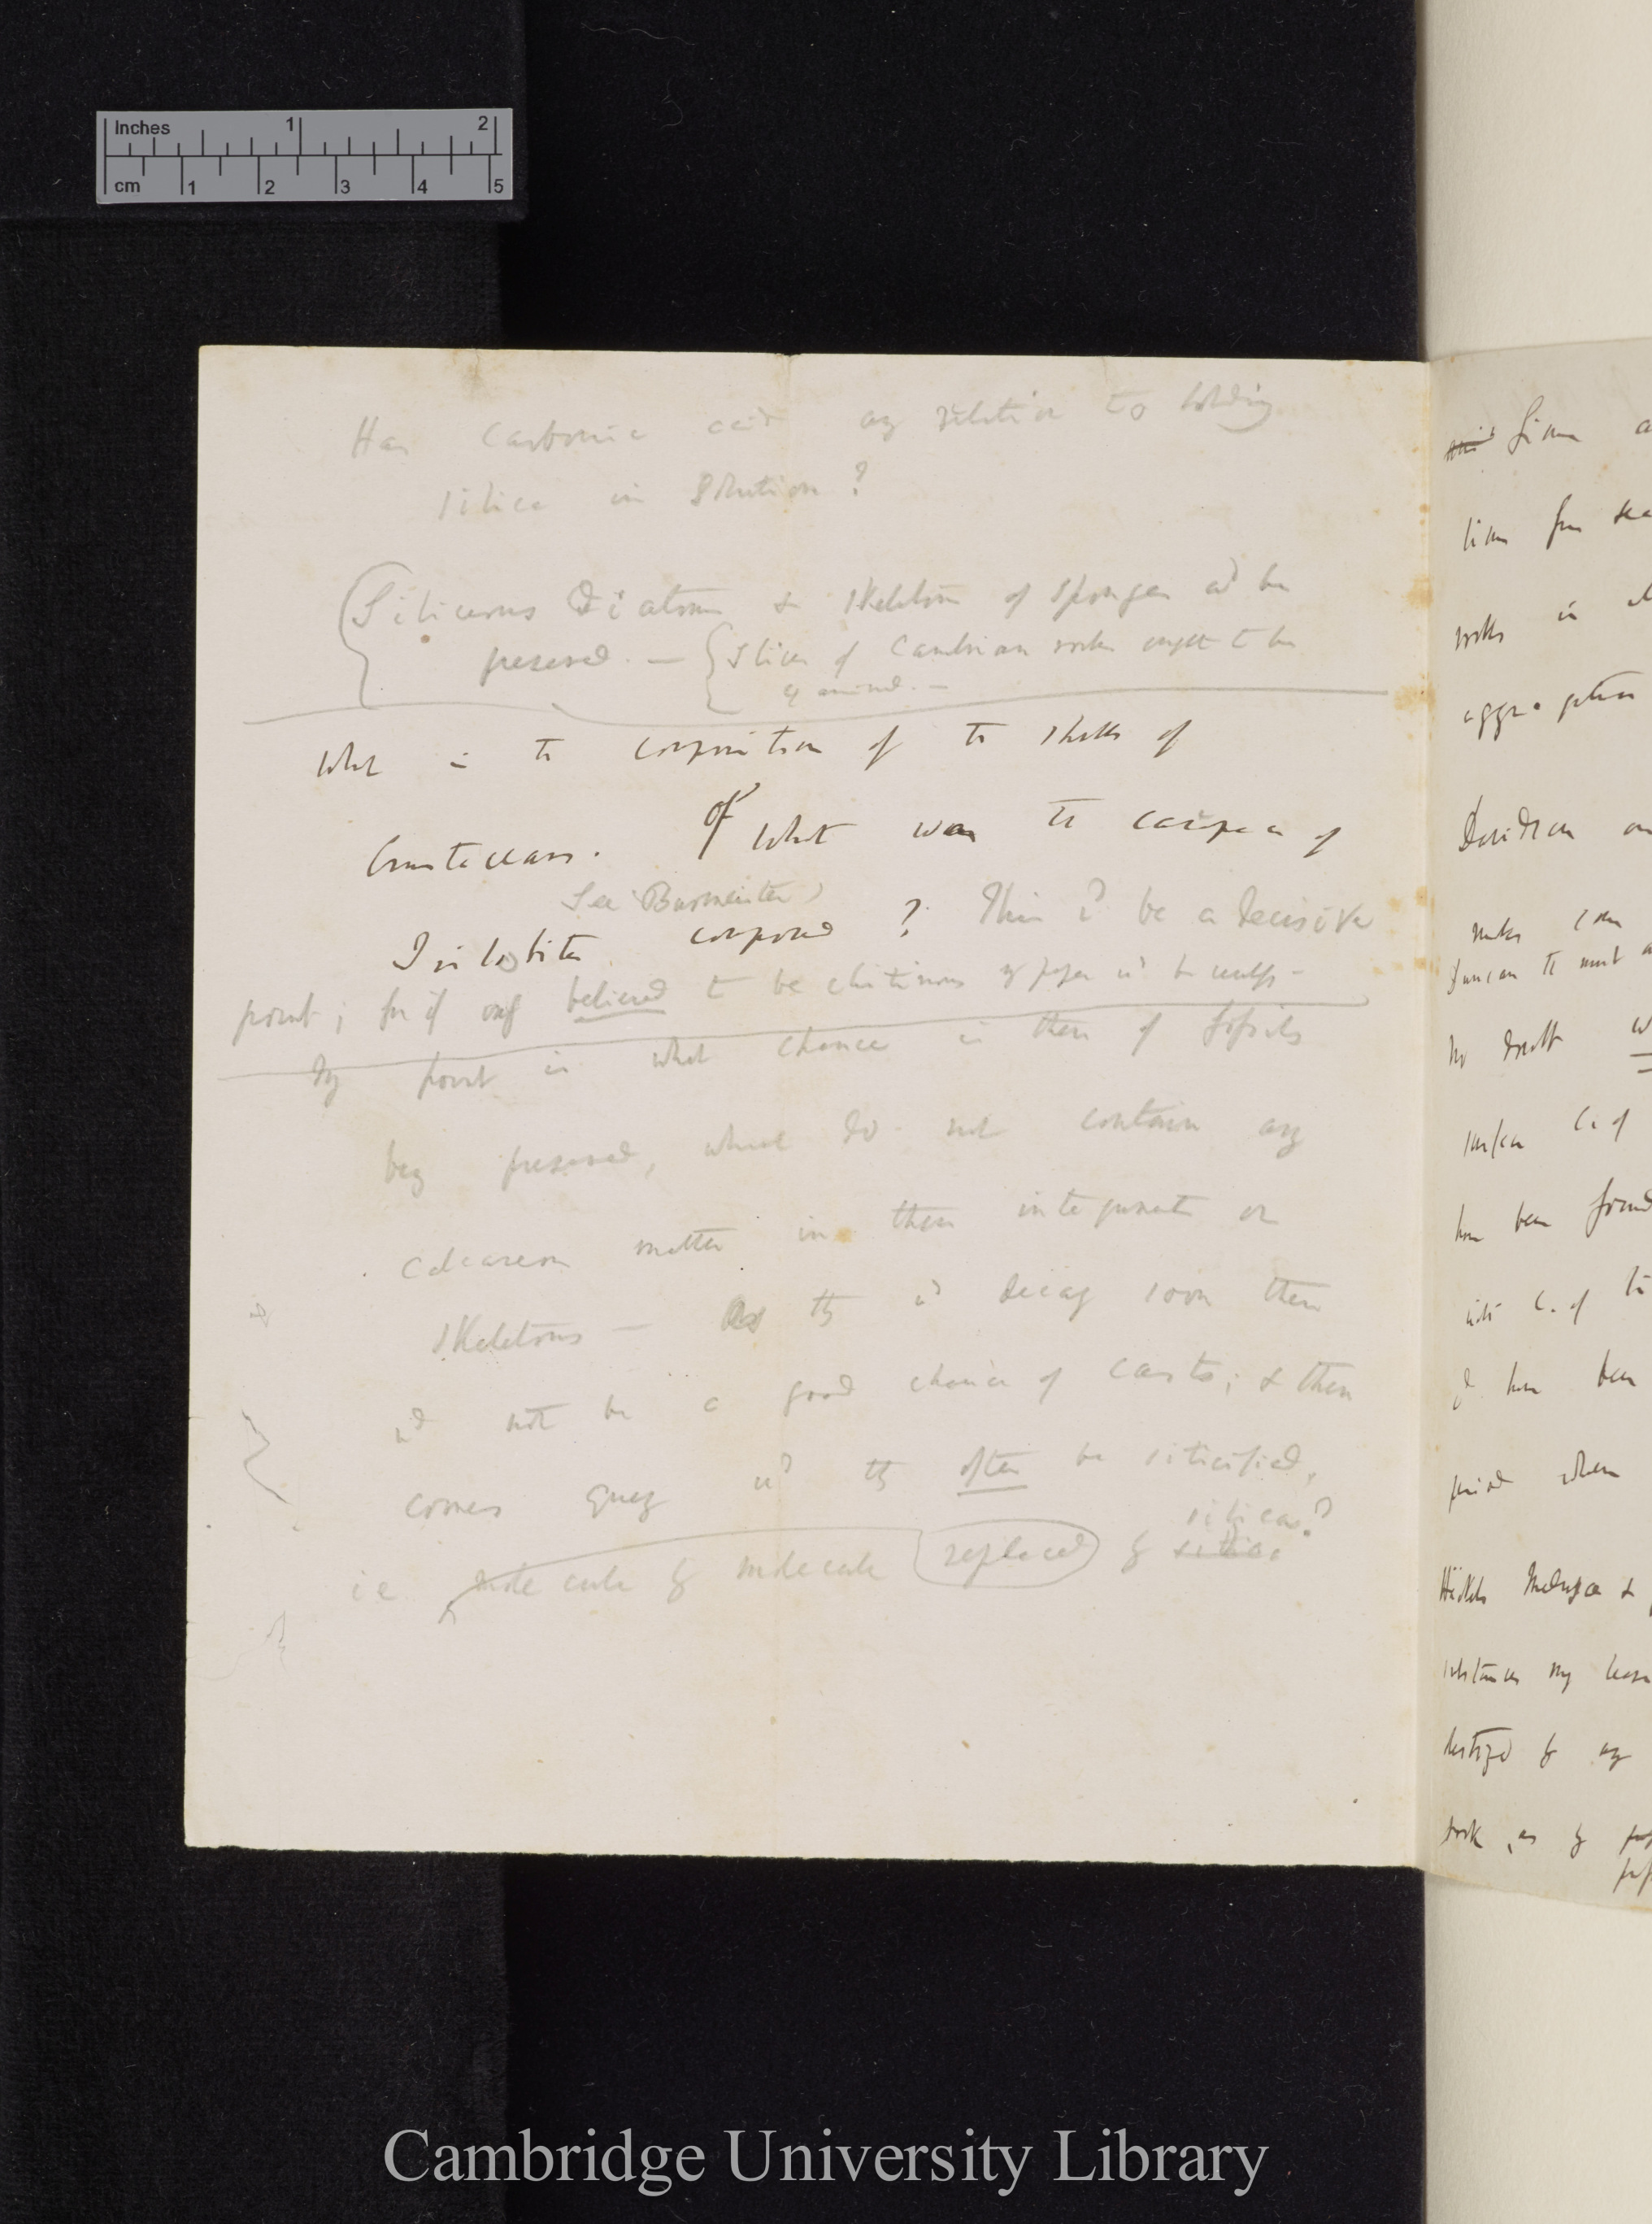 Inches 1 2
cm 1 2 3 4 5
Has Carbonic acid any relation to holding
silica in solution?
Siliceous Diatoms & skeleton of sponges wd be
preserved. — Slices of Cambrian rocks ought to be
examined. —
What is the composition of the shells of
Crustaceans. Of what was the carapace of
See Burmeister
Trilobites composed? This wd be a decisive
point; for if only believed to be chitinous my paper wd be
My point is what chance is there of fossils
being preserved, which do not contain any
calcareous matter in their integuments or
skeletons — As they wd decay soon there
wd not be a good chance of casts; & then
comes query wd they often be silicified,
silica?
ie molecule by molecule replaced by silica
lime
lime from sea
rocks in
aggregation
Davidson
makes
Duncan the
no doubt
surface C. of
have been found
into C. of
I have been
period when
Häckels Medusæ &
substances may leave
destroyed by any
rock, as by
Cambridge University Library